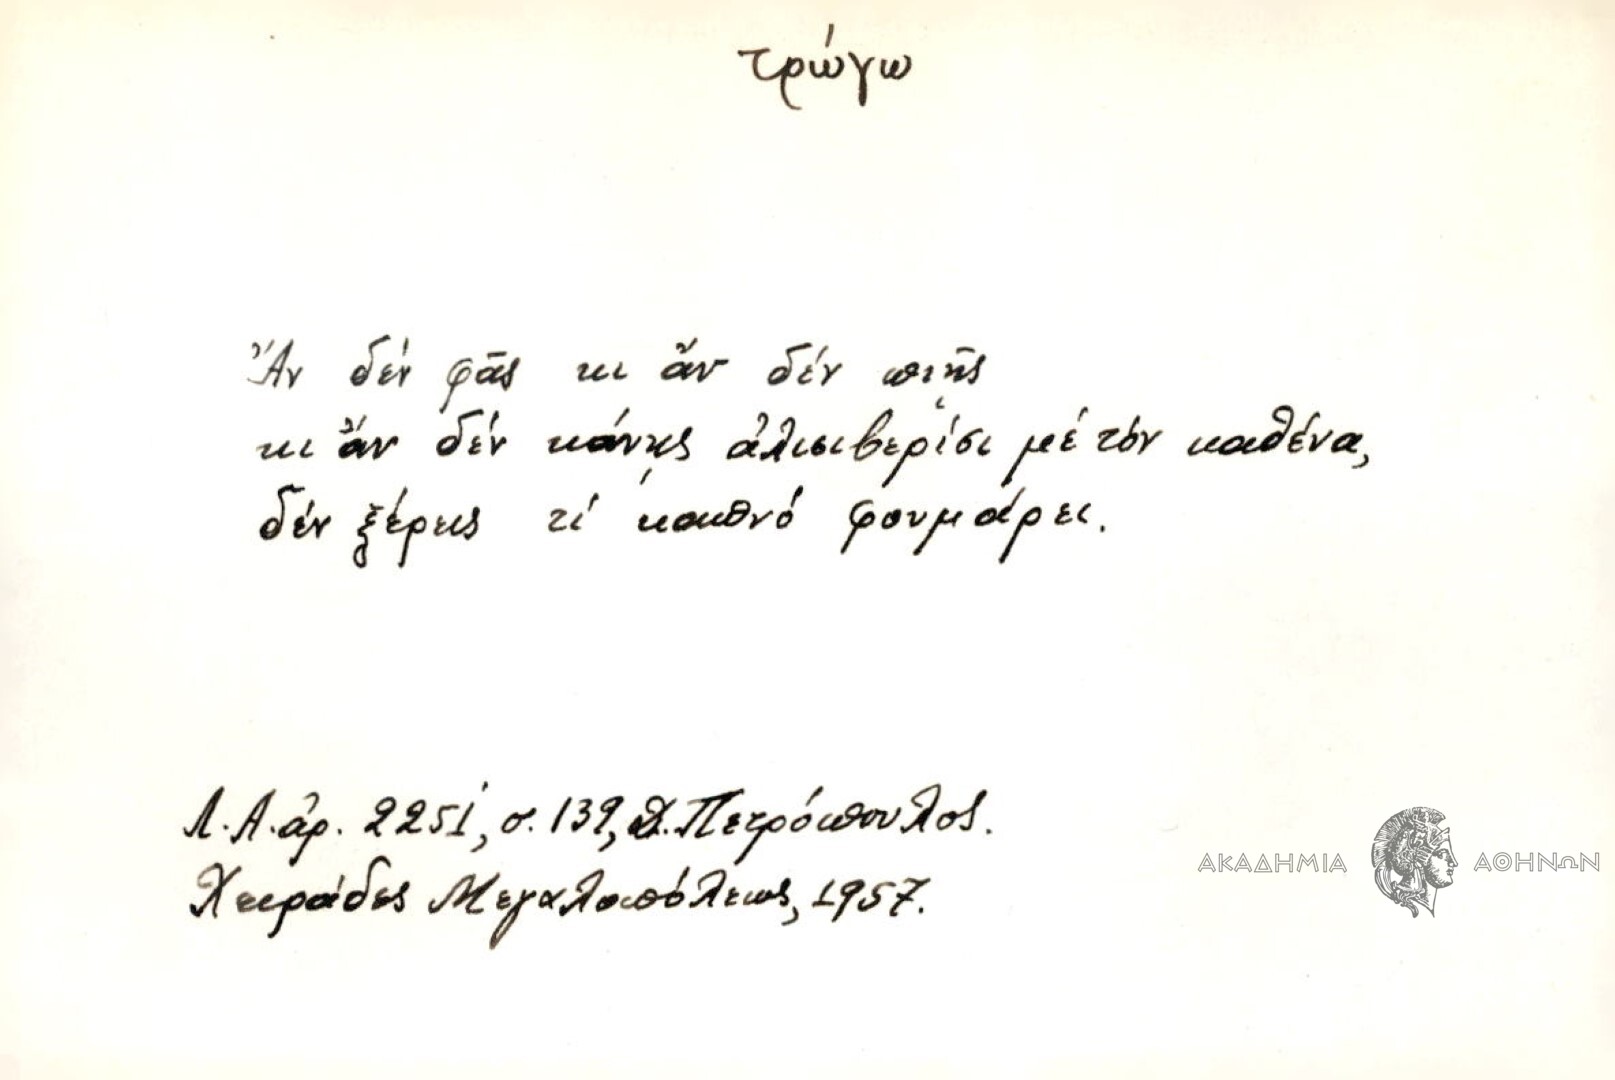 τρώγω
Ἄν δέν φᾶς κι ἄν δέν πιῇς
κι ἄν δέν κάνῃς ἀλισιβερίσι μέ τόν καθένα,
δέν ξέρεις τί καπνό φουμάρει.
Λ.Α. ἀρ. 2251, σ. 139, Δ. Πετρόπουλος.
Χειράδες Μεγαλοπόλεως, 1957.
ΑΚΑΔΗΜΙΑ ΑΘΗΝΩΝ